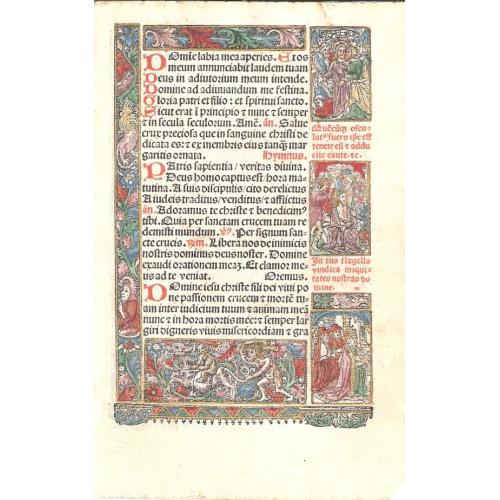 Domine labia mea aperies. Et os
meum annunciabit laudem tuam
Deus in adiutorium meum intende.
Domine ad adiuuandum me festina.
Gloria patri et filio : et spiritui sancto.
Sicut erat i principio et nunc et semper
et in secula seculorum. Amē. añ. Salue
crux preciosa que in sanguine christi de
dicata es: et ex membris eius tanq̄ mar
garitis ornata. Hymnus.
Patris sapientia/ veritas diuina.
Deus homo captus est/ hora ma
tutina. A suis discipulis/ cito derelictus
A iudeis traditus/ venditus/ et afflictus
añ Adoramus te christe et benedicim⁹
tibi. Quia per sanctam crucem tuam re
demisti mundum. Per signum san
cte crucis. Libera nos de inimicis
nostris dominus deus noster. Domine
exaudi orationem meaz. Et clamor me
us ad te veniat. Oremus.
Domine iesu christe fili dei viui po
ne passionem crucem et mortē tu
am inter iudicium tuum et animam meā
nunc et in hora mortis mee: et semper lar
giri digneris viuis misericordiam et gra
Quēcūq̄ oscu-
lat⁹ fuero ipse est
tenete eū et addu
cite caute. etc.
In tuo flagello
vindica iniqui-
tates nostras do
mine.